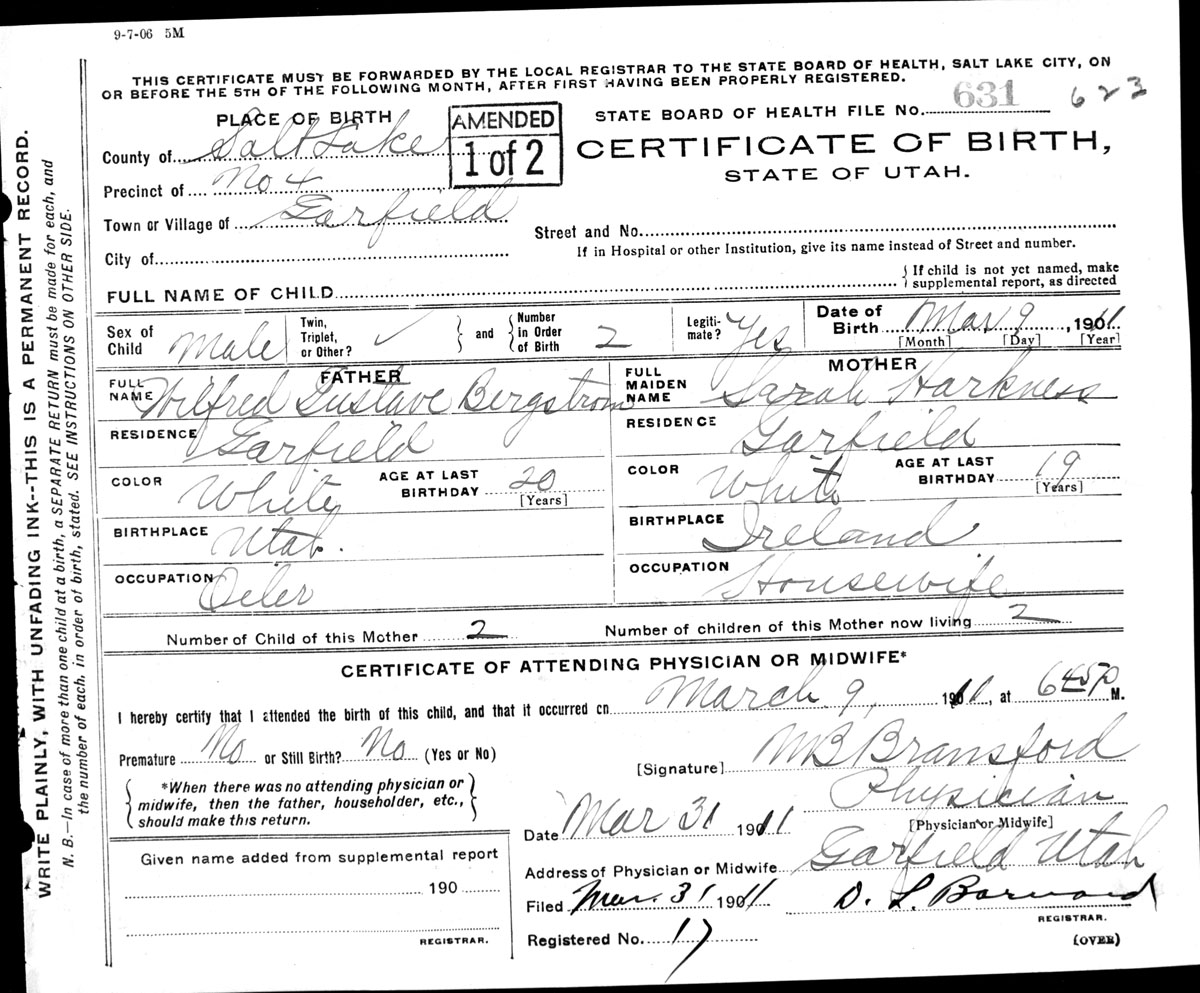 9-7-06 5M
THIS CERTIFICATE MUST BE FORWARDED BY THE LOCAL REGISTRAR TO THE STATE BOARD OF HEALTH, SALT LAKE CITY, ON
OR BEFORE THE 5TH OF THE FOLLOWING MONTH, AFTER FIRST HAVING BEEN PROPERLY REGISTERED.
WRITE PLAINLY, WITH UNFADING INK--THIS IS A PERMANENT RECORD.
N. B.—In case of more than one child at a birth, a SEPARATE RETURN must be made for each, and
the number of each, in order of birth, stated. SEE INSTRUCTIONS ON OTHER SIDE.
PLACE OF BIRTH
County of Salt Lake
Precinct of No 4
Town or Village of Garfield
City of
AMENDED
1 of 2
STATE BOARD OF HEALTH FILE No. 631 623
CERTIFICATE OF BIRTH,
STATE OF UTAH.
Street and No.
If in Hospital or other Institution, give its name instead of Street and number.
FULL NAME OF CHILD
If child is not yet named, make
supplemental report, as directed
Sex of Child Male
Twin, Triplet, or Other? ✓
and Number in Order of Birth 2
Legitimate? Yes
Date of Birth Mar 9, 1911
[Month] [Day] [Year]
FATHER
FULL NAME Wilfred Gustave Bergstrom
RESIDENCE Garfield
COLOR White AGE AT LAST BIRTHDAY 20
[Years]
BIRTHPLACE Utah.
OCCUPATION Oiler
MOTHER
FULL MAIDEN NAME Sarah Harkness
RESIDENCE Garfield
COLOR White AGE AT LAST BIRTHDAY 19
[Years]
BIRTHPLACE Ireland
OCCUPATION Housewife
Number of Child of this Mother 2 Number of children of this Mother now living 2
CERTIFICATE OF ATTENDING PHYSICIAN OR MIDWIFE*
I hereby certify that I attended the birth of this child, and that it occurred on March 9, 1911, at 6 45 P M.
Premature No or Still Birth? No (Yes or No)
*When there was no attending physician or
midwife, then the father, householder, etc.,
should make this return.
[Signature] MB Bransford
Physician
[Physician or Midwife]
Date Mar 31 1911
Address of Physician or Midwife Garfield Utah
Given name added from supplemental report
190
REGISTRAR.
Filed Mar. 31 1911 D. L. Barnard
REGISTRAR.
Registered No. 17
(OVER)